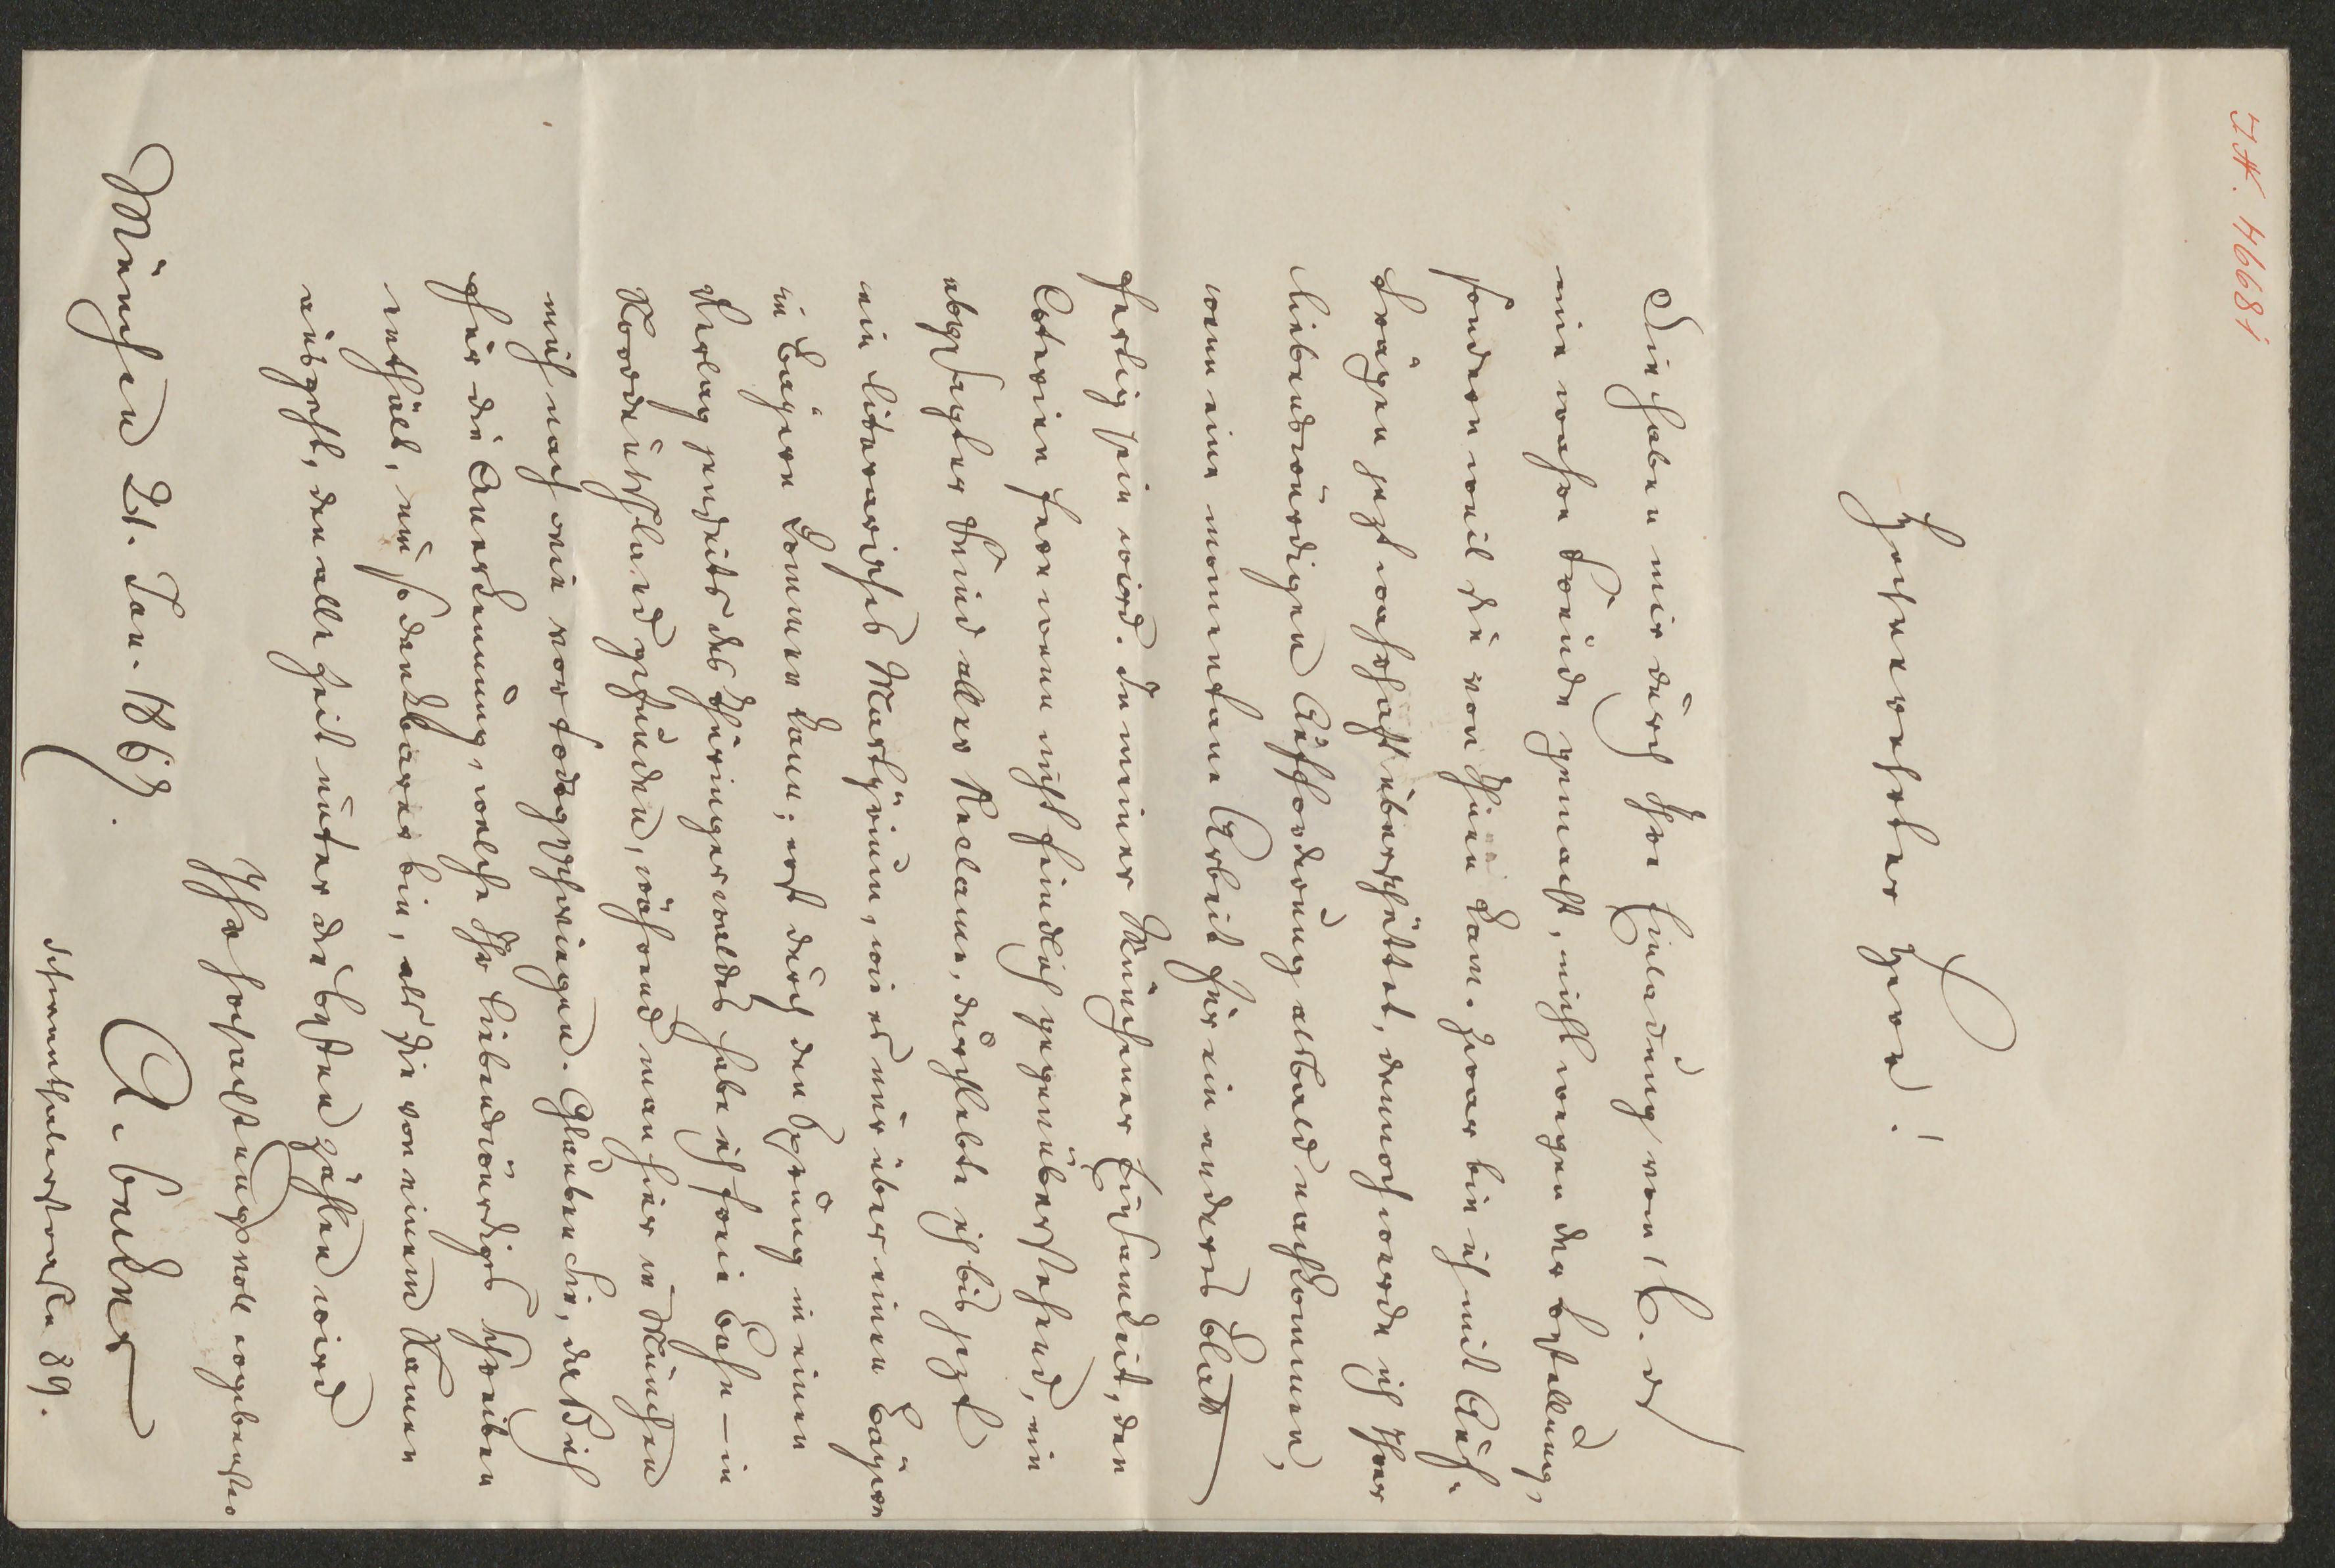 I.N. 46681
Hochverehrter Herr!
Sie haben mir durch Ihre Einladung vom 16. d
eine wahre Freude gemacht, nicht wegen der Bestellung,
sondern weil sie von Ihnen kam. Zwar bin ich mit Auf-
trägen jezt wahrhaft überschüttet, dennoch werde ich Ihrer
liebenswürdigen Aufforderung alsbald nachkommen,
wenn eine momentane Arbeit für ein anderes Blatt
fertig sein wird. In meiner Münchener Einsamkeit, den
Coterien fern wenn nicht feindlich gegenüberstehend, ein
abgesagter Feind aller Reclame, durchlebte ich bis jezt
ein literarisches Martyrium, wie es nur über einen Bayern
in Bayern kommen kann; erst durch den Sprung in einen
Verlag jenseits des Thüringerwaldes habe ich freie Bahn – in
Norddeutschland gefunden, während man hier in München
mich nach wie vor todgeschwiegen. Glauben Sie, daß ich
für die Anerkennung, welche Ihr liebenswürdiges Schreiben
enthält, um so dankbarer bin, als sie von einem Namen
ausgeht, der allezeit unter die besten zählen wird
Ihr hochachtungsvoll ergebenster
München 21. Jan. 1869.
A. Becker
Schwanthalerstraße 89.